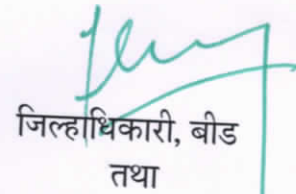 जिल्हाधिकारी, बीड
तथा